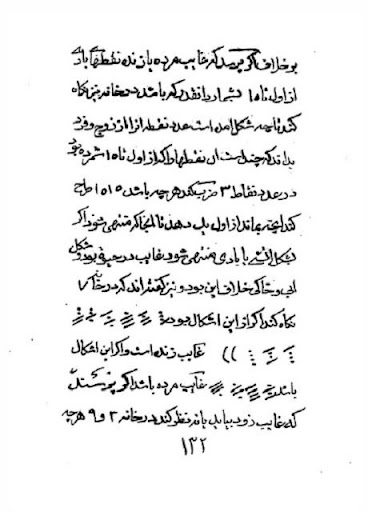 بو خلاف اکر پرسد که غایب مرده یا زنده نقطهای بادی
از اول تا ۱۵ بشمارد انقدر که باشد در خانه نیز نکاه
کند تا چه شکل امده است عدد نقطه انرا از زوج و فرد
بداند که چند است ان نقطها را که از اول تا ۱۵ شمرده بود
در عدد نقاط ۳ ضرب کند هر چه باشد ۱۵ ۱۵ طرح
کند انچه بماند از اول باب دهد تا انجا که منتهی شود اکر
بشکل اتشی یا بادی منتهی شود غایب در حیوة بود و شکل
ابی و خاکی خلاف این بود و نیز کفته اند که در خانه ۷
نکاه کند اکر از این اشکال بود
غایب زنده است و اکر این اشکال
باشد غایب مرده باشد اکر پرسند
که غایب زود بیاید یا نه نظر کند در خانه ۲ و ۹ هر چه
۱۳۲